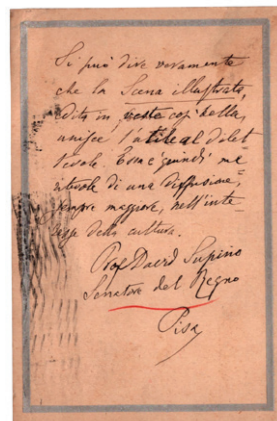 Si può dire veramente
che la Scena illustrata,
edita in veste così bella,
unisce l'utile al dilet
tevole. Essa è quindi me
ritevole di una diffusione,
sempre maggiore, nell'inte
resse della cultura.
Prof David Supino
Senatore del Regno
Pisa